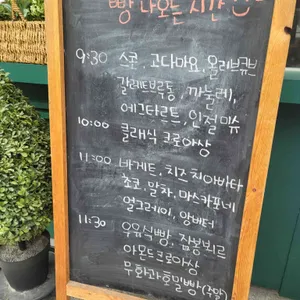 빵 나오는 시간
9:30 스콘, 고다마요, 올리브큐브
갈레트브르통, 까눌레,
에그타르트, 인절미휴
10:00 클래식 크로아상
11:00 바게트, 치즈치아바타
초코, 말차, 마스카포네
얼그레이, 앙버터
11:30 우유식빵, 잠봉뵈르
아몬드크로아상
무화과호밀빵 (주말)